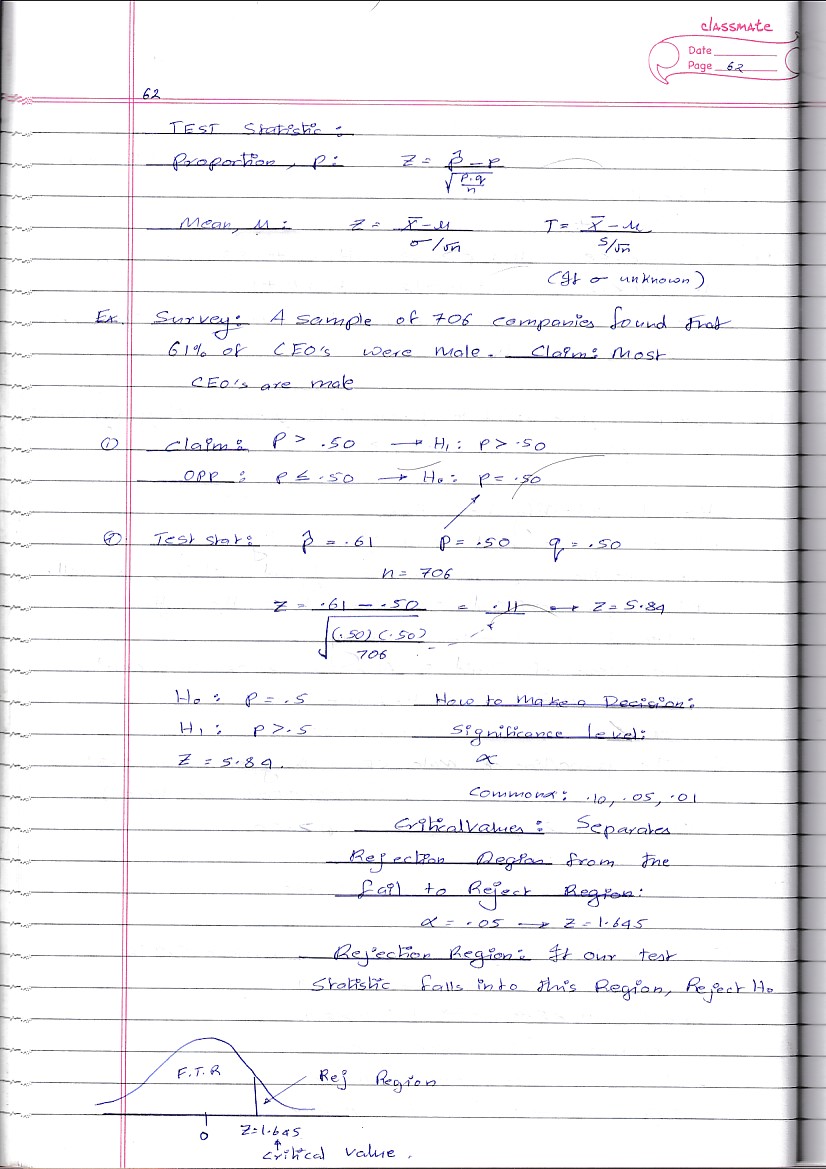 classmate
Date
Page 62
62
TEST Statistic :
Proportion, p: Z = p̂ - p / √(p.q/n)
Mean, μ : Z = x̄ - μ / σ/√n T = x̄ - μ / s/√n
(If σ unknown)
Ex. Survey: A sample of 706 companies found that
61% of CEO's were male. Claim: Most
CEO's are male
① Claim: P > .50 → H₁ : p > .50
OPP : p ≤ .50 → H₀ : p = .50
② Test stat: p̂ = .61 p = .50 q = .50
n = 706
Z = .61 - .50 / √((.50)(.50)/706) = .11 → Z = 5.84
H₀ : p = .5 How to Make a Decision:
H₁ : p > .5 Significance level:
Z = 5.84. α
Common α : .10, .05, .01
Critical Values : Separates
Rejection Region from the
fail to Reject Region:
α = .05 → Z = 1.645
Rejection Region: If our test
Statistic falls into this Region, Reject H₀
F.T.R Rej Region
0 Z=1.645
↑
Critical value.